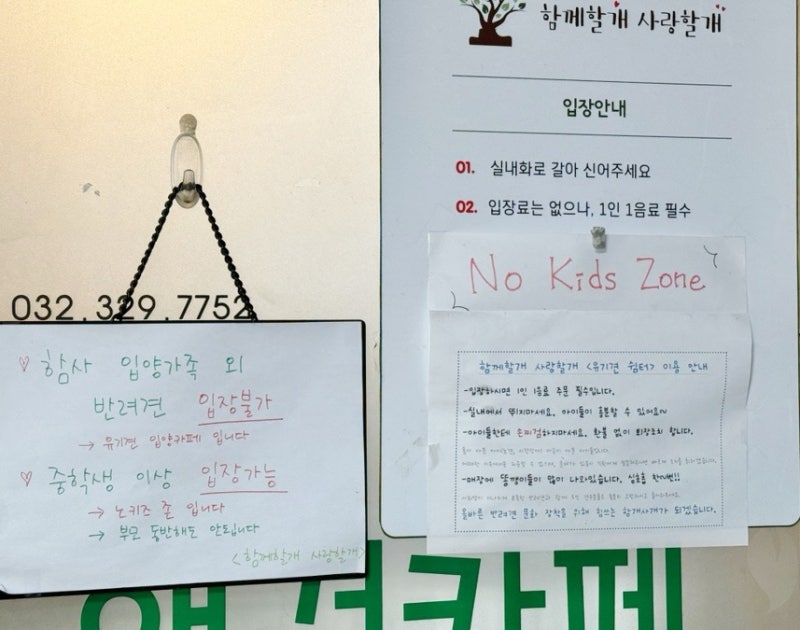 032.329.7752
♡ 함사 입양가족 외
반려견 입장불가
→ 유기견 입양카페 입니다
♡ 중학생 이상 입장가능
→ 노키즈 존 입니다
→ 부모 동반해도 안됩니다
<함께할개 사랑할개>
함께할개 사랑할개
입장안내
01. 실내화로 갈아 신어주세요
02. 입장료는 없으나, 1인 1음료 필수
No Kids Zone
함께할개 사랑할개 <유기견 쉼터> 이용 안내
-입장하시면 1인 1음료 주문 필수입니다.
-실내에서 뛰지마세요. 아이들이 흥분할 수 있어요~
-아이들한테 손찌검하지마세요. 환불 없이 퇴장조치 합니다.
-매장에 똥깡이들이 많이 나와있습니다.
올바른 반려견 문화 정착을 위해 힘쓰는 함께사개가 되겠습니다.
카페